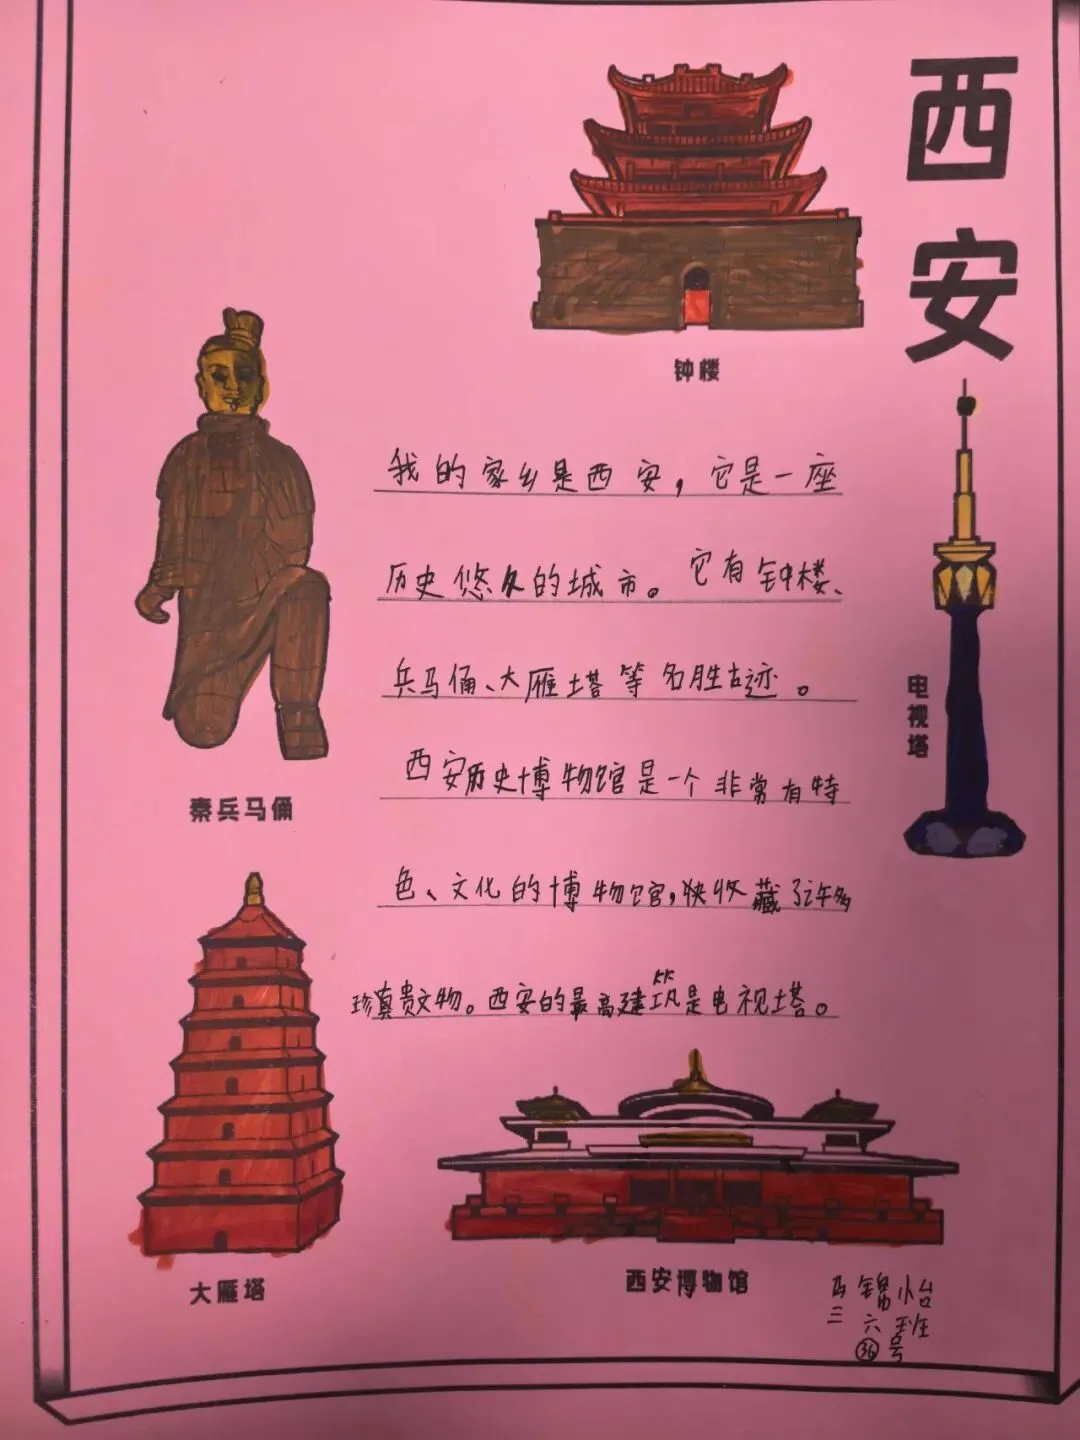 西安
钟楼
我的家乡是西安，它是一座
历史悠久的城市。它有钟楼、
兵马俑、大雁塔等名胜古迹。
电视塔
西安历史博物馆是一个非常有特
秦兵马俑
色、文化的博物馆，快收藏了许多
珍真贵文物。西安的最高建筑是电视塔。
大雁塔
西安博物馆
锦怡
三六班
36号